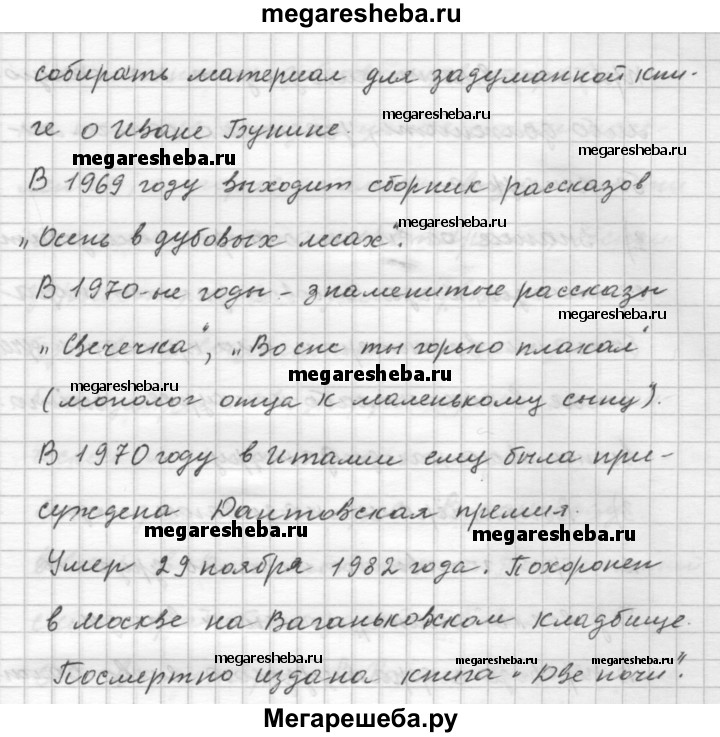 megaresheba.ru
собирать материал для задуманной кни-
megaresheba.ru
ге о Иване Бунине.
megaresheba.ru
megaresheba.ru
В 1969 году выходит сборник рассказов
„Осень в дубовых лесах“.
megaresheba.ru
В 1970-ые годы - знаменитые рассказы
megaresheba.ru
„Свечечка“, „Во сне ты горько плакал“
megaresheba.ru
megaresheba.ru
(монолог отца к маленькому сыну).
В 1970 году в Италии ему была при-
суждена Дантовская премия.
megaresheba.ru
megaresheba.ru
Умер 29 ноября 1982 года. Похоронен
в Москве на Ваганьковском кладбище.
megaresheba.ru
megaresheba.ru
megaresheba.ru
Посмертно издана книга „Две ночи“.
Мегарешеба.ру